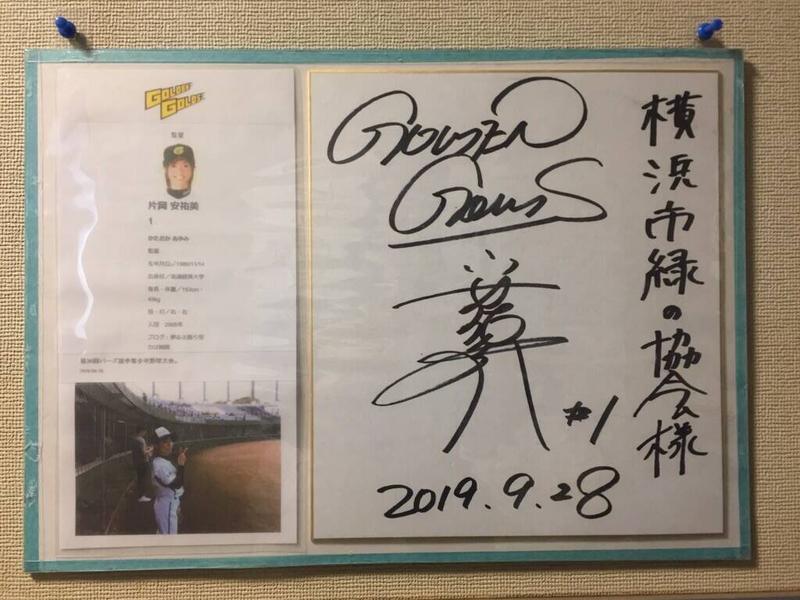 GOLDEN
GOLDS
監督
片岡 安祐美
1
かたおか あゆみ
監督
生年月日／1986/11/14
出身校／熊本商業大学
身長・体重／153cm・
49kg
投・打／右・右
入団 2005年
GOLDEN
GOLDS
#1
2019.9.28
横浜市緑の協会様